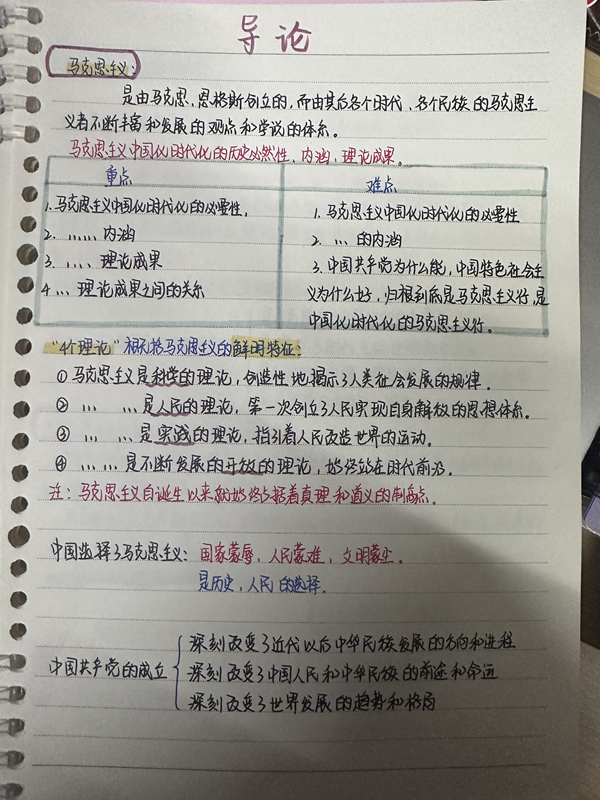 导论
马克思主义：
是由马克思、恩格斯创立的，而由其后各个时代、各个民族的马克思主
义者不断丰富和发展的观点和学说的体系。
马克思主义中国化时代化的历史必然性、内涵、理论成果。
重点
1. 马克思主义中国化时代化的必要性，
2. …… 内涵
3. …. 理论成果
4 … 理论成果之间的关系
难点
1. 马克思主义中国化时代化的必要性
2. … 的内涵
3. 中国共产党为什么能，中国特色社会主
义为什么好，归根到底是马克思主义行，是
中国化时代化的马克思主义行。
“4个理论”概括马克思主义的鲜明特征：
① 马克思主义是科学的理论，创造性地揭示了人类社会发展的规律。
② … … 是人民的理论，第一次创立了人民实现自身解放的思想体系。
③ … … 是实践的理论，指引着人民改造世界的运动。
④ … … 是不断发展的开放的理论，始终站在时代前沿。
注：马克思主义自诞生以来就始终占据着真理和道义的制高点。
中国选择了马克思主义：国家蒙辱，人民蒙难，文明蒙尘。
是历史，人民的选择。
中国共产党的成立
深刻改变了近代以后中华民族发展的方向和进程
深刻改变了中国人民和中华民族的前途和命运
深刻改变了世界发展的趋势和格局